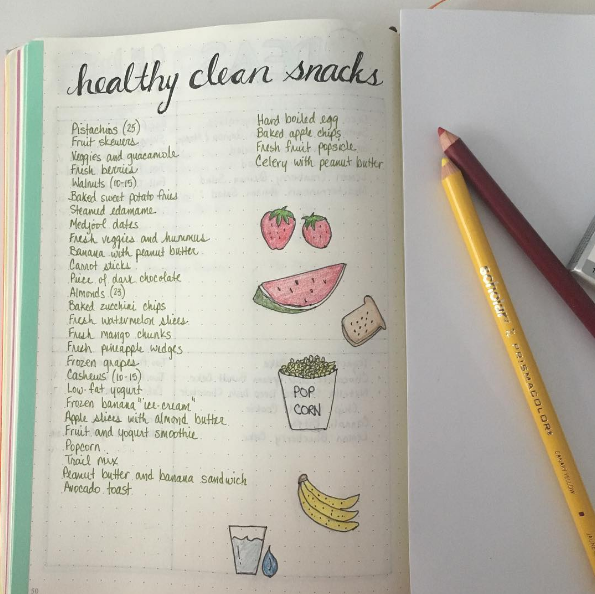 healthy clean snacks
Pistachios (25)
Fruit skewers
Veggies and guacamole
Fresh berries
Walnuts (10-15)
Baked sweet potato fries
Steamed edamame
Medjool dates
Fresh veggies and hummus
Banana with peanut butter
Carrot sticks
Piece of dark chocolate
Almonds (23)
Baked zucchini chips
Fresh watermelon slices
Fresh mango chunks
Fresh pineapple wedges
Frozen grapes
Cashews (10-15)
Low-fat yogurt
Frozen banana "ice-cream"
Apple slices with almond butter
Fruit and yogurt smoothie
Popcorn
Trail mix
Peanut butter and banana sandwich
Avocado toast
Hard boiled egg
Baked apple chips
Fresh fruit popsicle
Celery with peanut butter
POP
CORN
PRISMACOLOR